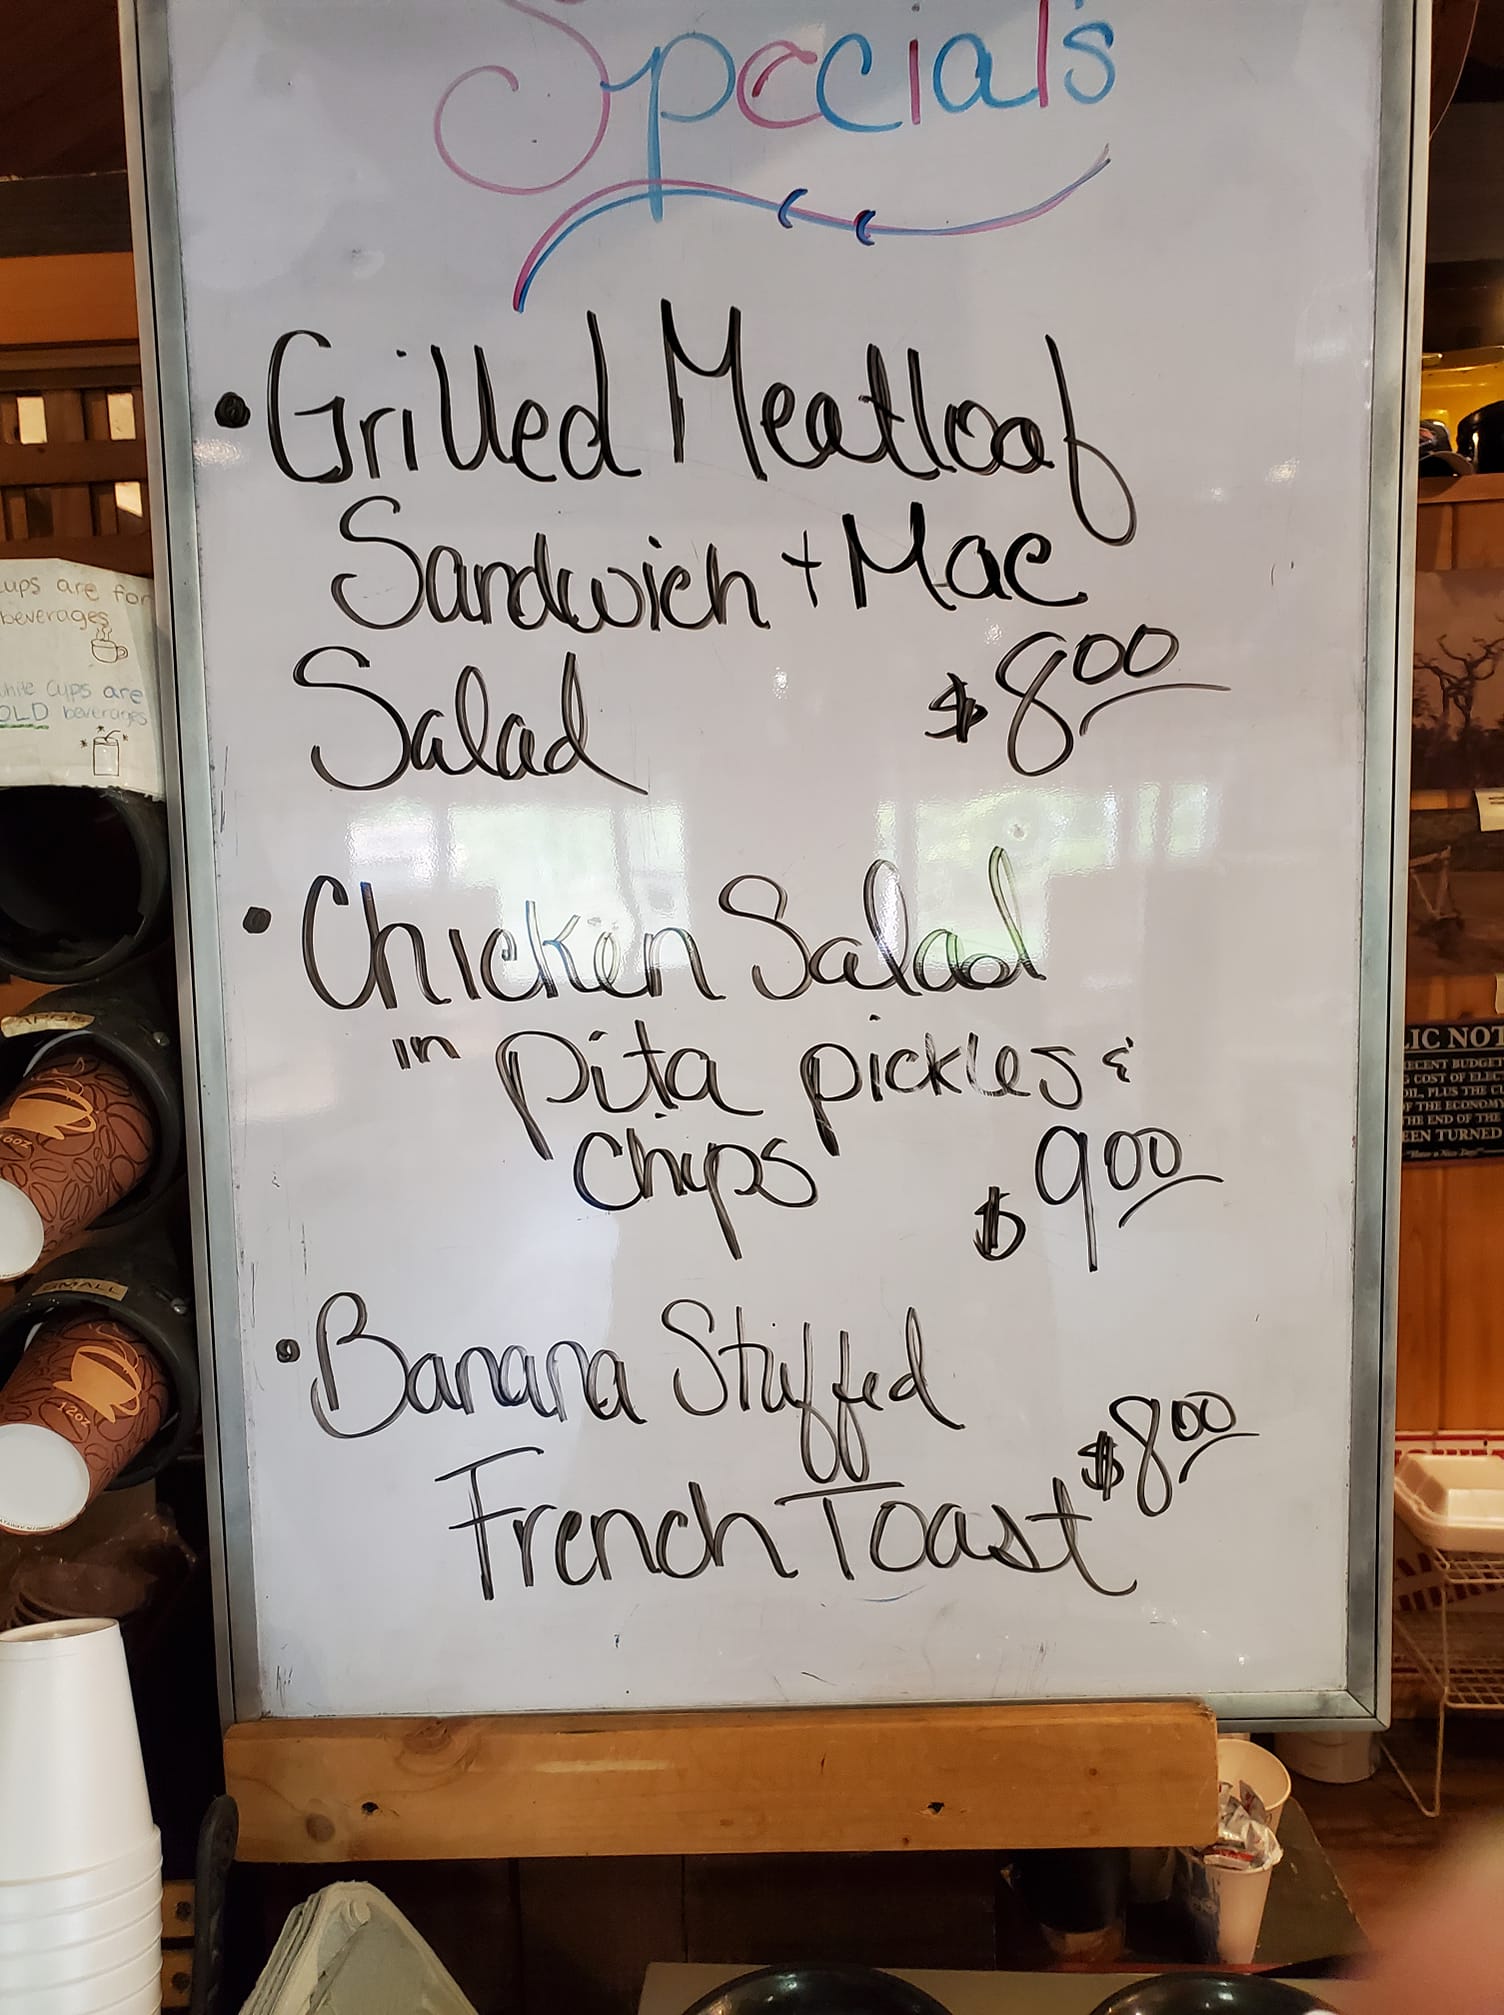 Specials
• Grilled Meatloaf
Sandwich + Mac
Salad $8.00
• Chicken Salad
in pita pickles &
Chips $9.00
• Banana Stuffed
French Toast $8.00
cups are for
beverages
Cups are
COLD beverages
16oz
SMALL
12oz
LIC NOT
RECENT BUDGET
COST OF ELEC
OIL, PLUS THE
OF THE ECONOMY
THE END OF THE
EEN TURNED
"Have a Nice Day!"